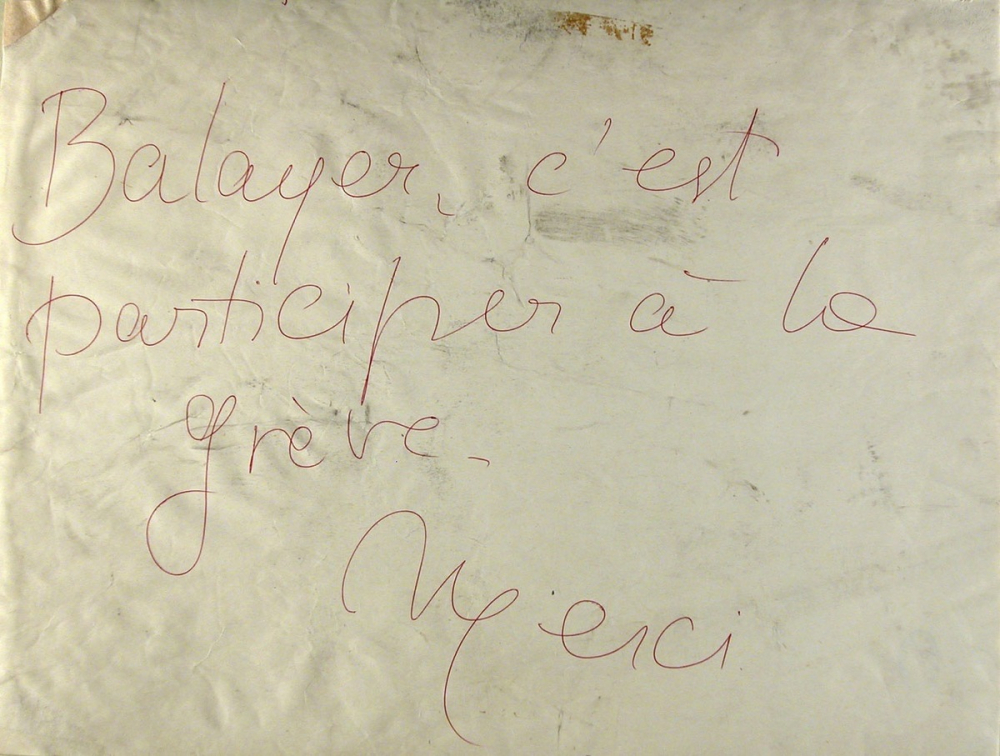 Balayer, c'est
participer à la
grève.
Merci